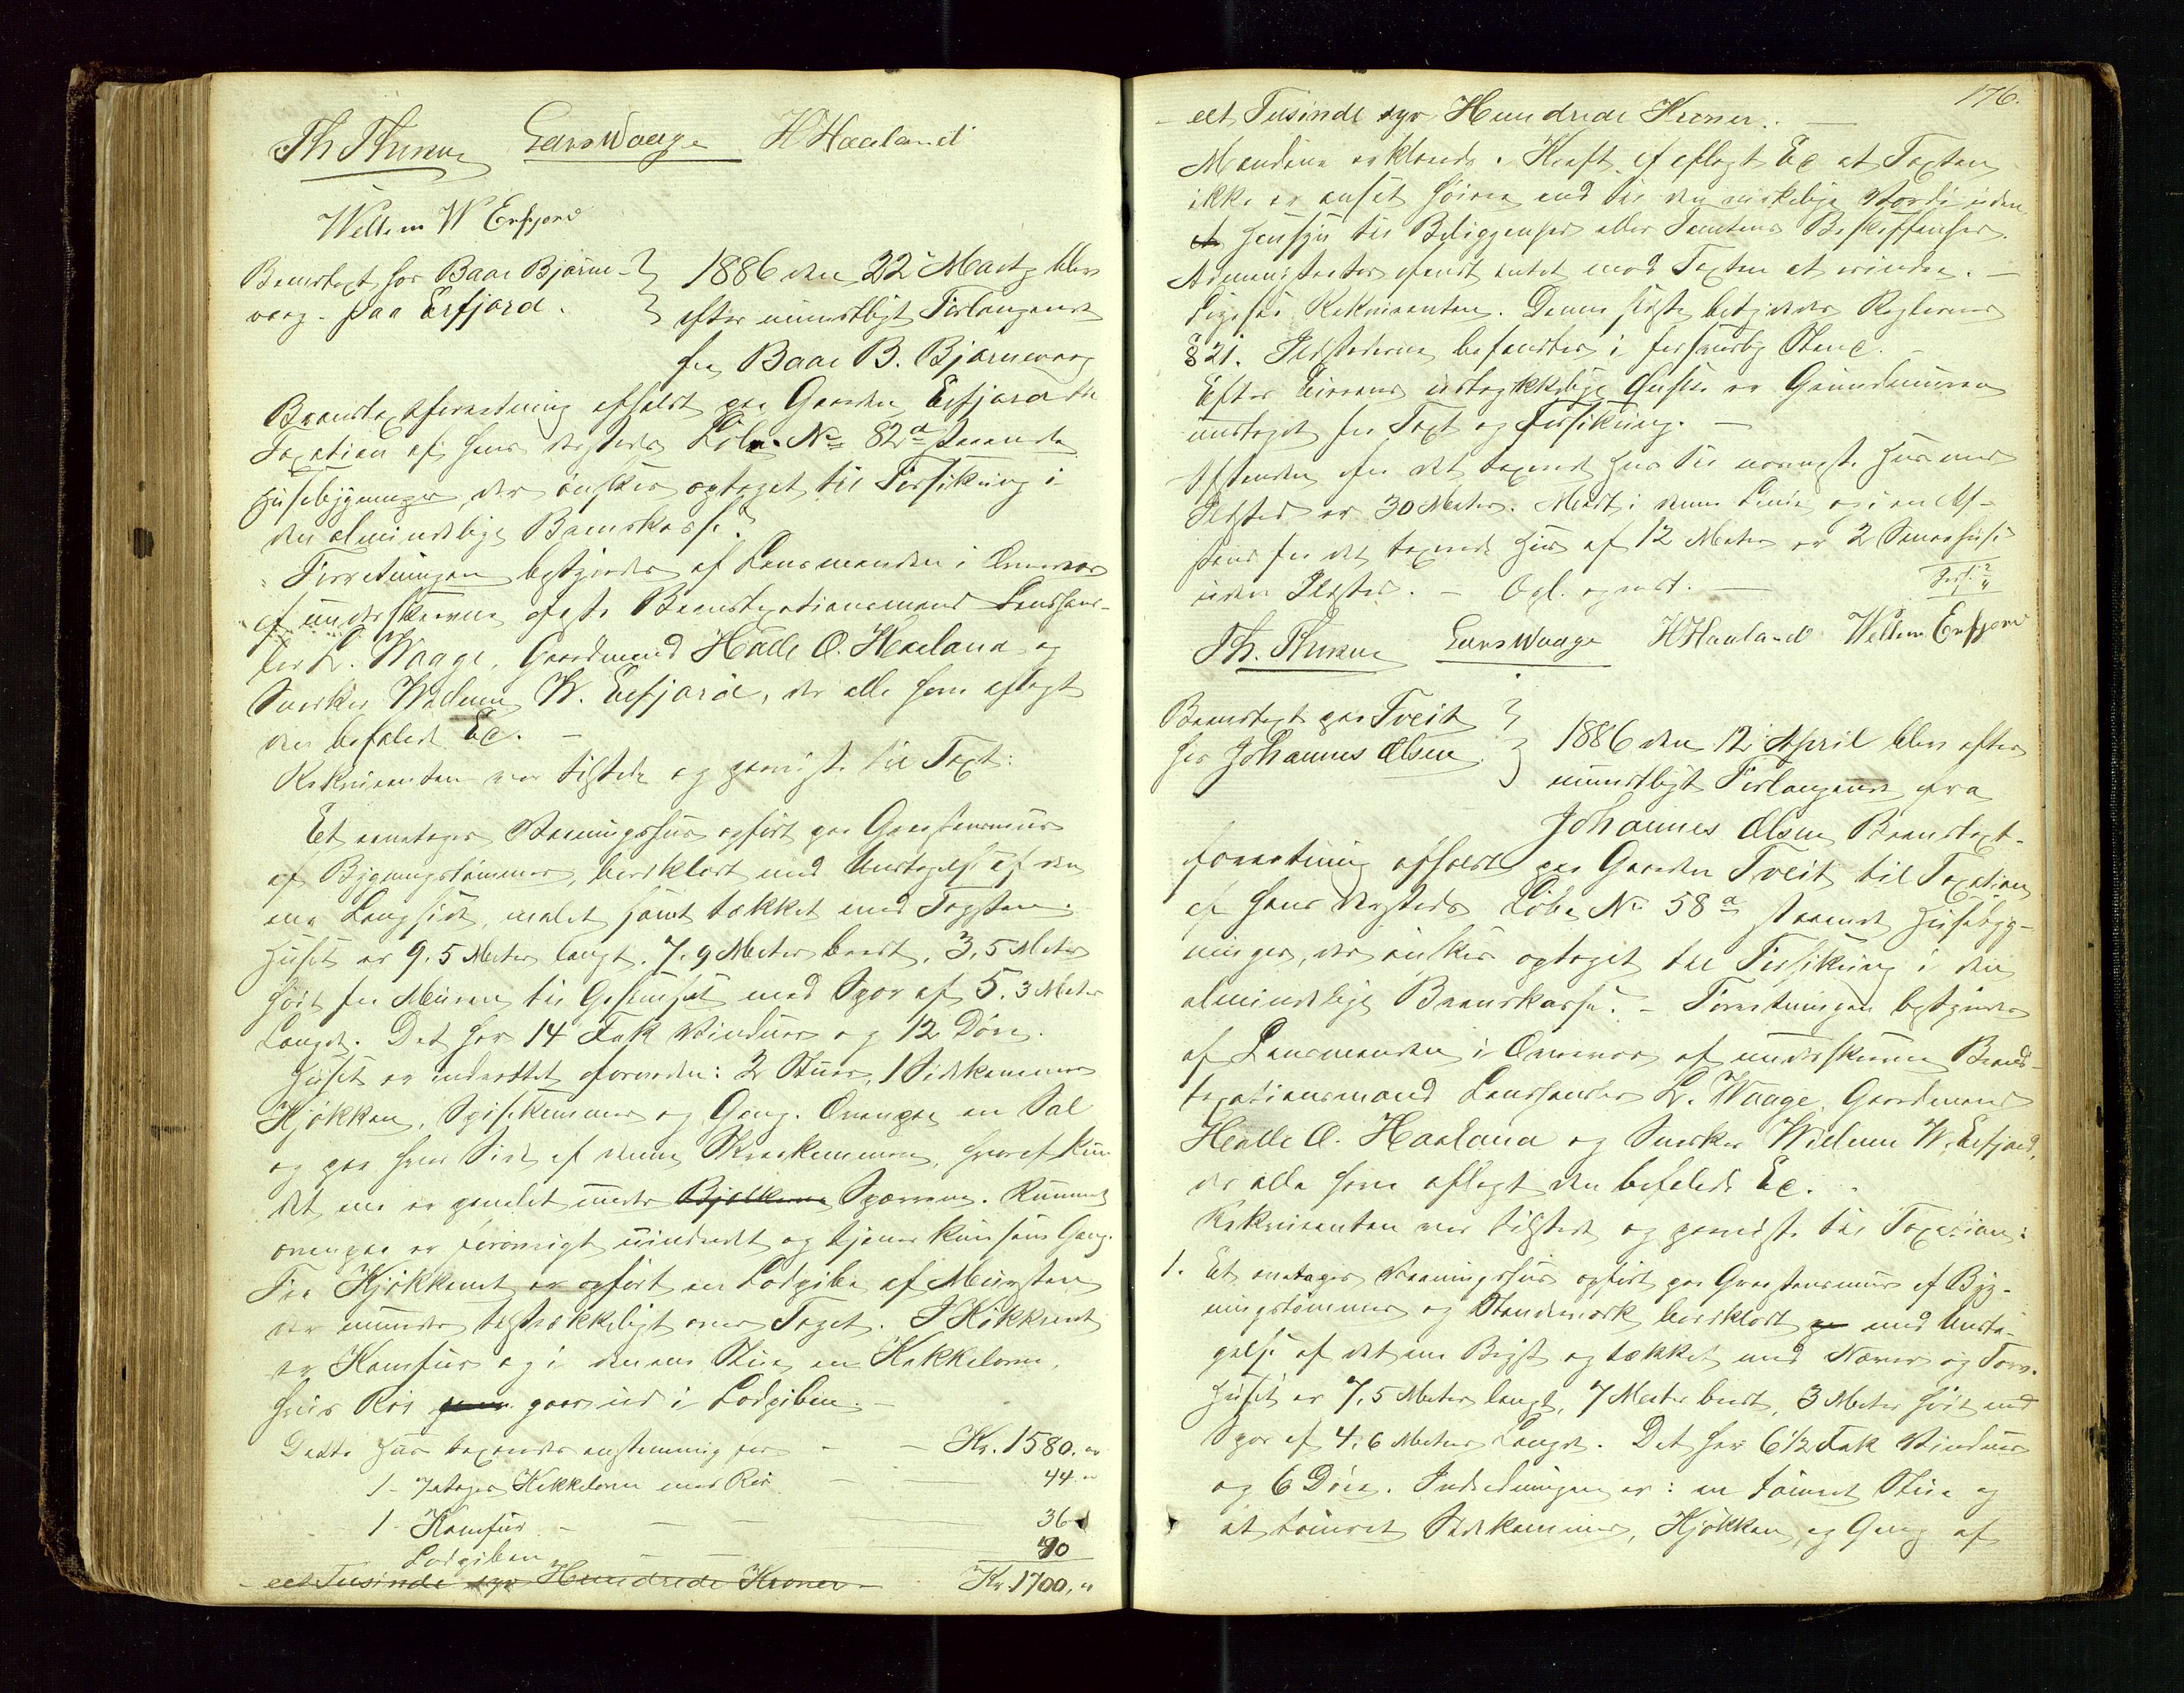 Th Thurne Lars Waage H Haaland
Wellem W Erfjord
Brandtaxt for Baar Bjørne-
vaag paa Erfjord.
1886 den 22 Martz blev
efter mundtligt Forlangende
fra Baar B. Bjørnevaag
Brandtaxtforretning afholdt paa Gaarden Erfjord til
Taxation af hans dersteds Løbe No 82a staaende
Husebygninger, der ønskes optaget til Forsikring i
den almindelige Brandkasse.
Forretningen bestyredes af Lensmanden i
af underskrevne faste Brandtaxationsmænd Landhand-
ler L. Waage, Gaardmand Halle O. Haaland og
Snedker Wellem W. Erfjord, der alle have aflagt
den befalede Ed. –
Rekvirenten var tilstede og paaviste til Taxt:
Et eenetages Vaaningshus opført paa Graastensmuur
af Bygningstømmer, bordklædt med Undtagelse af den
ene Langside, malet samt tækket med Tagsten.
Huset er 9,5 Meter langt, 7,9 Meter bredt, 3,5 Meter
høit fra Muren til Gesimset med Spær af 5,3 Meter
Længde. Det har 14 Fak Vinduer og 12 Døre.
Huset er indrettet forneden: 2 Stuer, 1 Sidekammer
Kjøkken, Spisekammer og Gang. Ovenpaa en Sal
og paa hver Side af denne Skraakammere, hvoraf kun
det ene er panelet under Bjælkerne Sperrene. Rummet
ovenpaa er forøvrigt uindredt og tjener kun som Gang.
Fra Kjøkkenet er opført en Lodpibe af Mursten
der munder tilstrækkeligt over Taget. I Kjøkkenet
er Komfur og i den ene Stue en Kakkelovn,
hvis Rør gaar ud i Lodpiben. –
Dette Hus taxeredes enstemmig for – – Kr. 1580. "
1 - 2etages Kakkelovn med Rør – 44 "
1 - Komfur – – – 36
Lodpiben – – 40
– eet Tusinde syv Hundrede Kroner – Kr. 1700, "
176.
– eet Tusinde syv Hundrede Kroner. –
Mændene erklærede i Kraft af aflagt Ed at Taxten
ikke er ansat høiere end til den virkelige Værdi uden
Hensyn til Beliggenhed eller Tomtens Beskaffenhed.
Administrator fandt intet mod Taxten at erindre. –
Ligesaa Rekvirenten. Denne sidste betydedes Reglernes
§ 21. Ildstederne befandtes i forsvarlig Stand. –
Efter Eierens udtrykkelige Ønske er Grundmuren
undtaget fra Taxt og Forsikring. –
Afstanden fra det taxerede Hus til nærmeste Hus med
Ildsted er 30 Meter. Midt i denne Linie og i en Af-
stand fra det taxerede Hus af 12 Meter er 2 Huse
uden Ildsted. – Opl. og vedt. –
Th. Thurne Lars Waage H Haaland Wellem Erfjord
Brandtaxt paa Tveit
for Johannes Olsen.
1886 den 12 April blev efter
mundtligt Forlangende fra
Johannes Olsen Brandtaxt-
forretning afholdt paa Gaarden Tveit til Taxation
af hans dersteds Løbe No 58a staaende Husebyg-
ninger, der ønskes optaget til Forsikring i den
almindelige Brandkasse. – Forretningen bestyredes
af Lensmanden i af underskrevne Brand-
taxationsmænd Landhandler L. Waage, Gaardmand
Halle O. Haaland og Snedker Wellem W. Erfjord,
der alle have aflagt den befalede Ed.
Rekvirenten var tilstede og paaviste til Taxation:
1. Et eenetages Vaaningshus opført paa Graastensmuur af Byg-
ningstømmer og Standværk bordklædt med Undta-
gelse af det ene Bygst og tækket med Næver og Torv.
Huset er 7,5 Meter langt, 7 Meter bredt, 3 Meter høit med
Spær af 4,6 Meter Længde. Det har 6 1/2 Fak Vinduer
og 6 Døre. Indredningen er: en tømret Stue og
et tømret Sidekammer, Kjøkken og Gang af